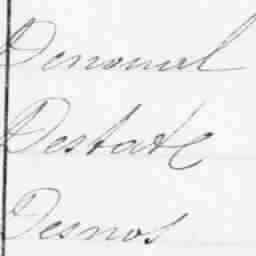 Denoual
Destate
Desnos